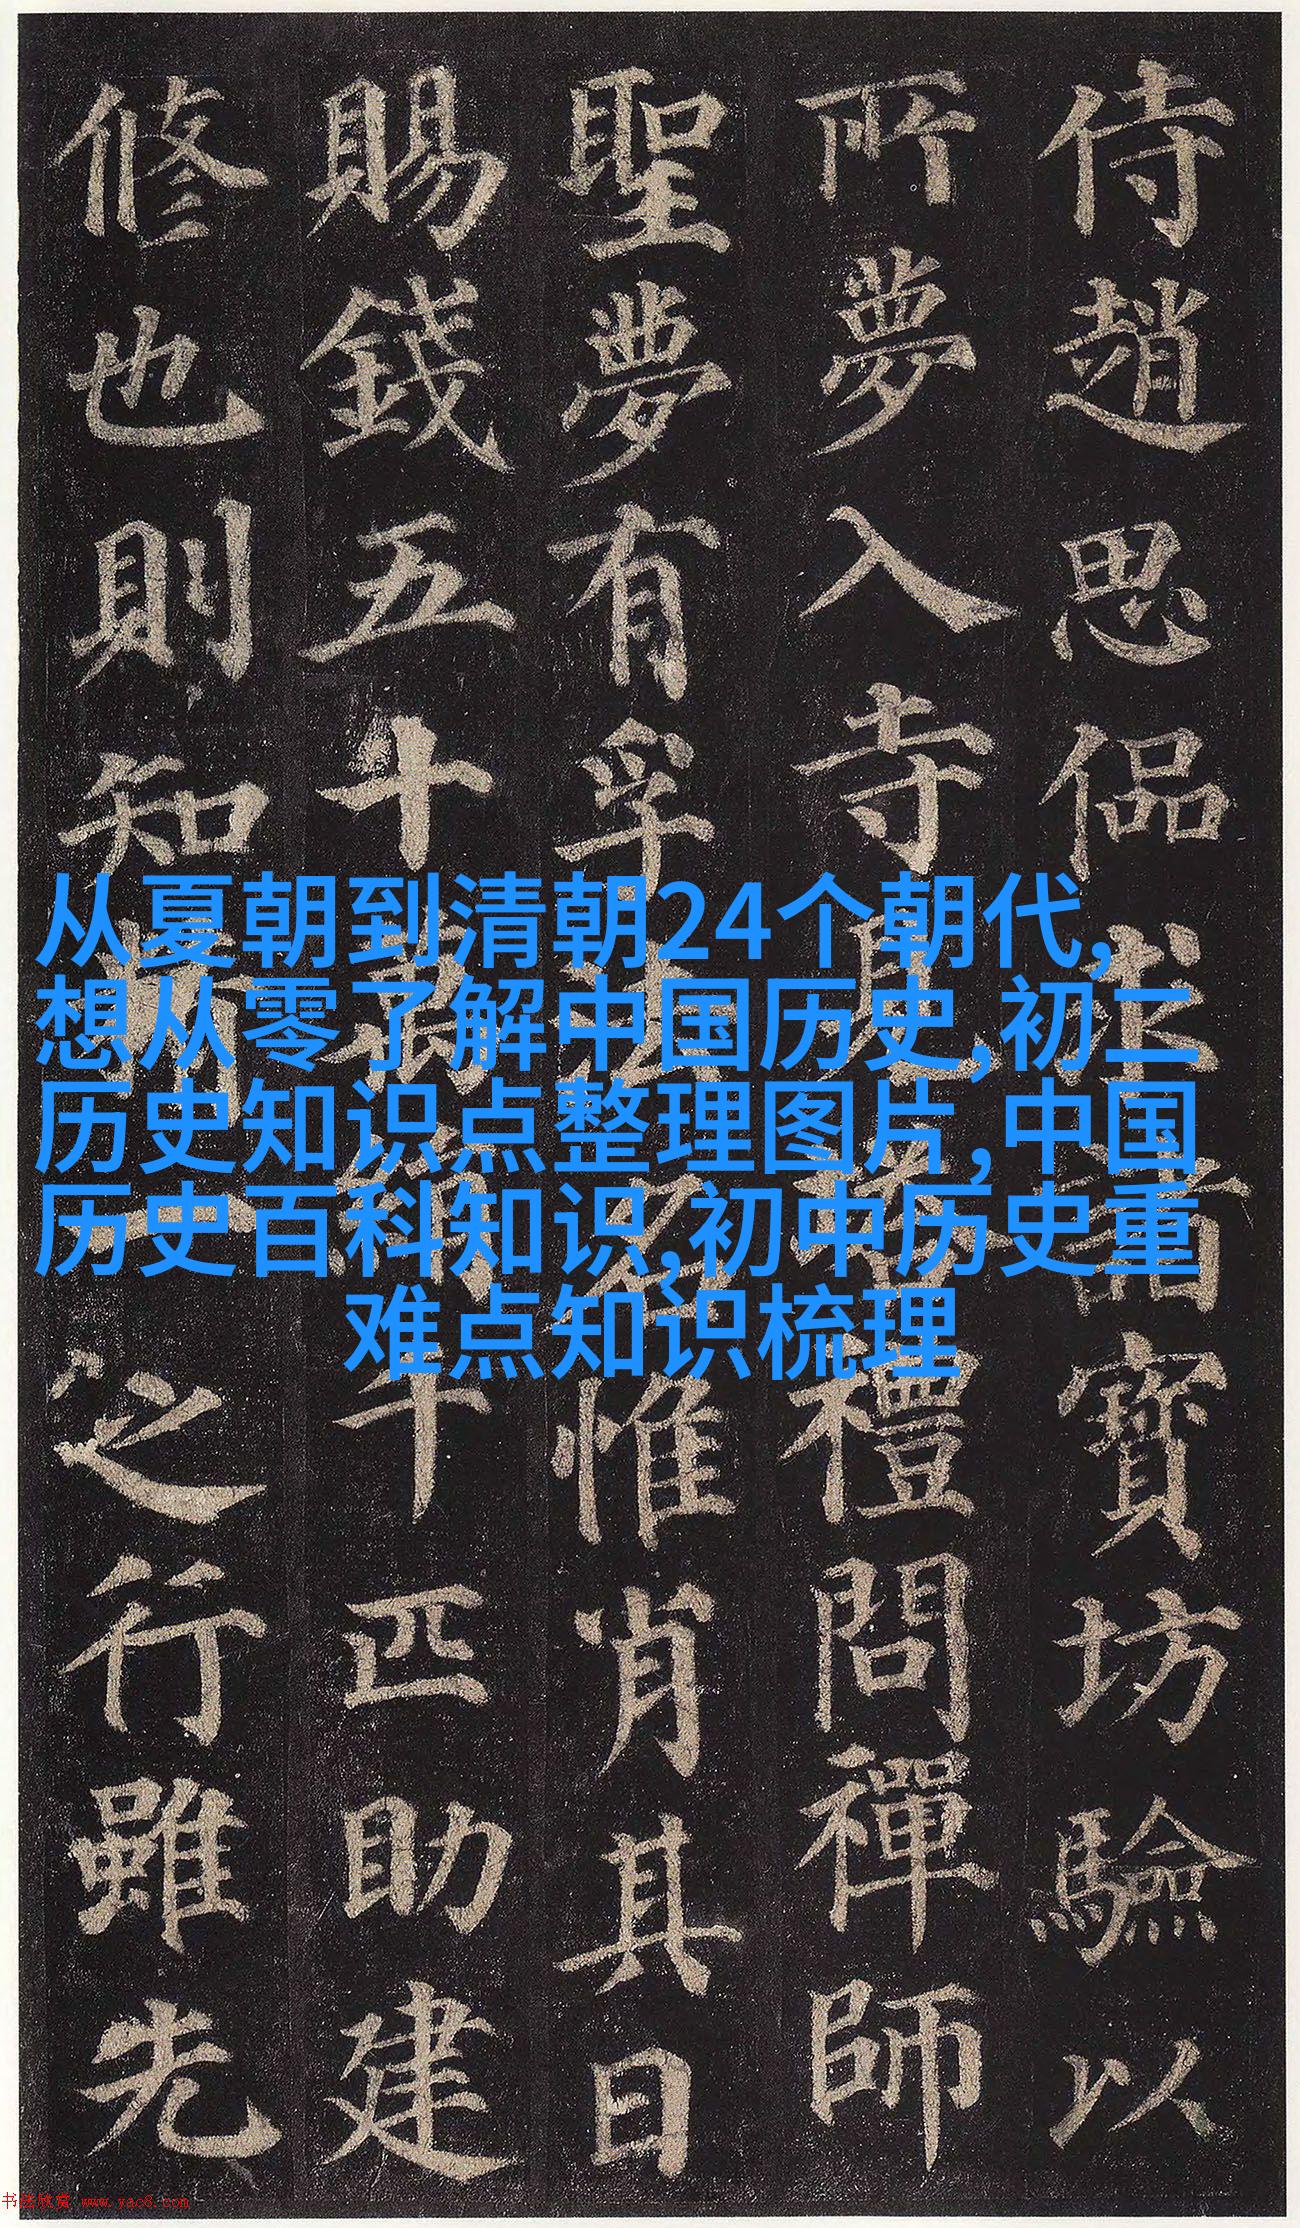 侍趙思偘求諸寶坊驗以
所夢入寺見塔禮問禪師
聖夢有孚法名惟肖其日
賜錢五十萬絹千匹助建
修也則知精一之行雖先
从夏朝到清朝24个朝代,
想从零了解中国历史,初二
历史知识点整理图片,中国
历史百科知识,初中历史重
难点知识梳理
书法欣赏 www.yac8.com